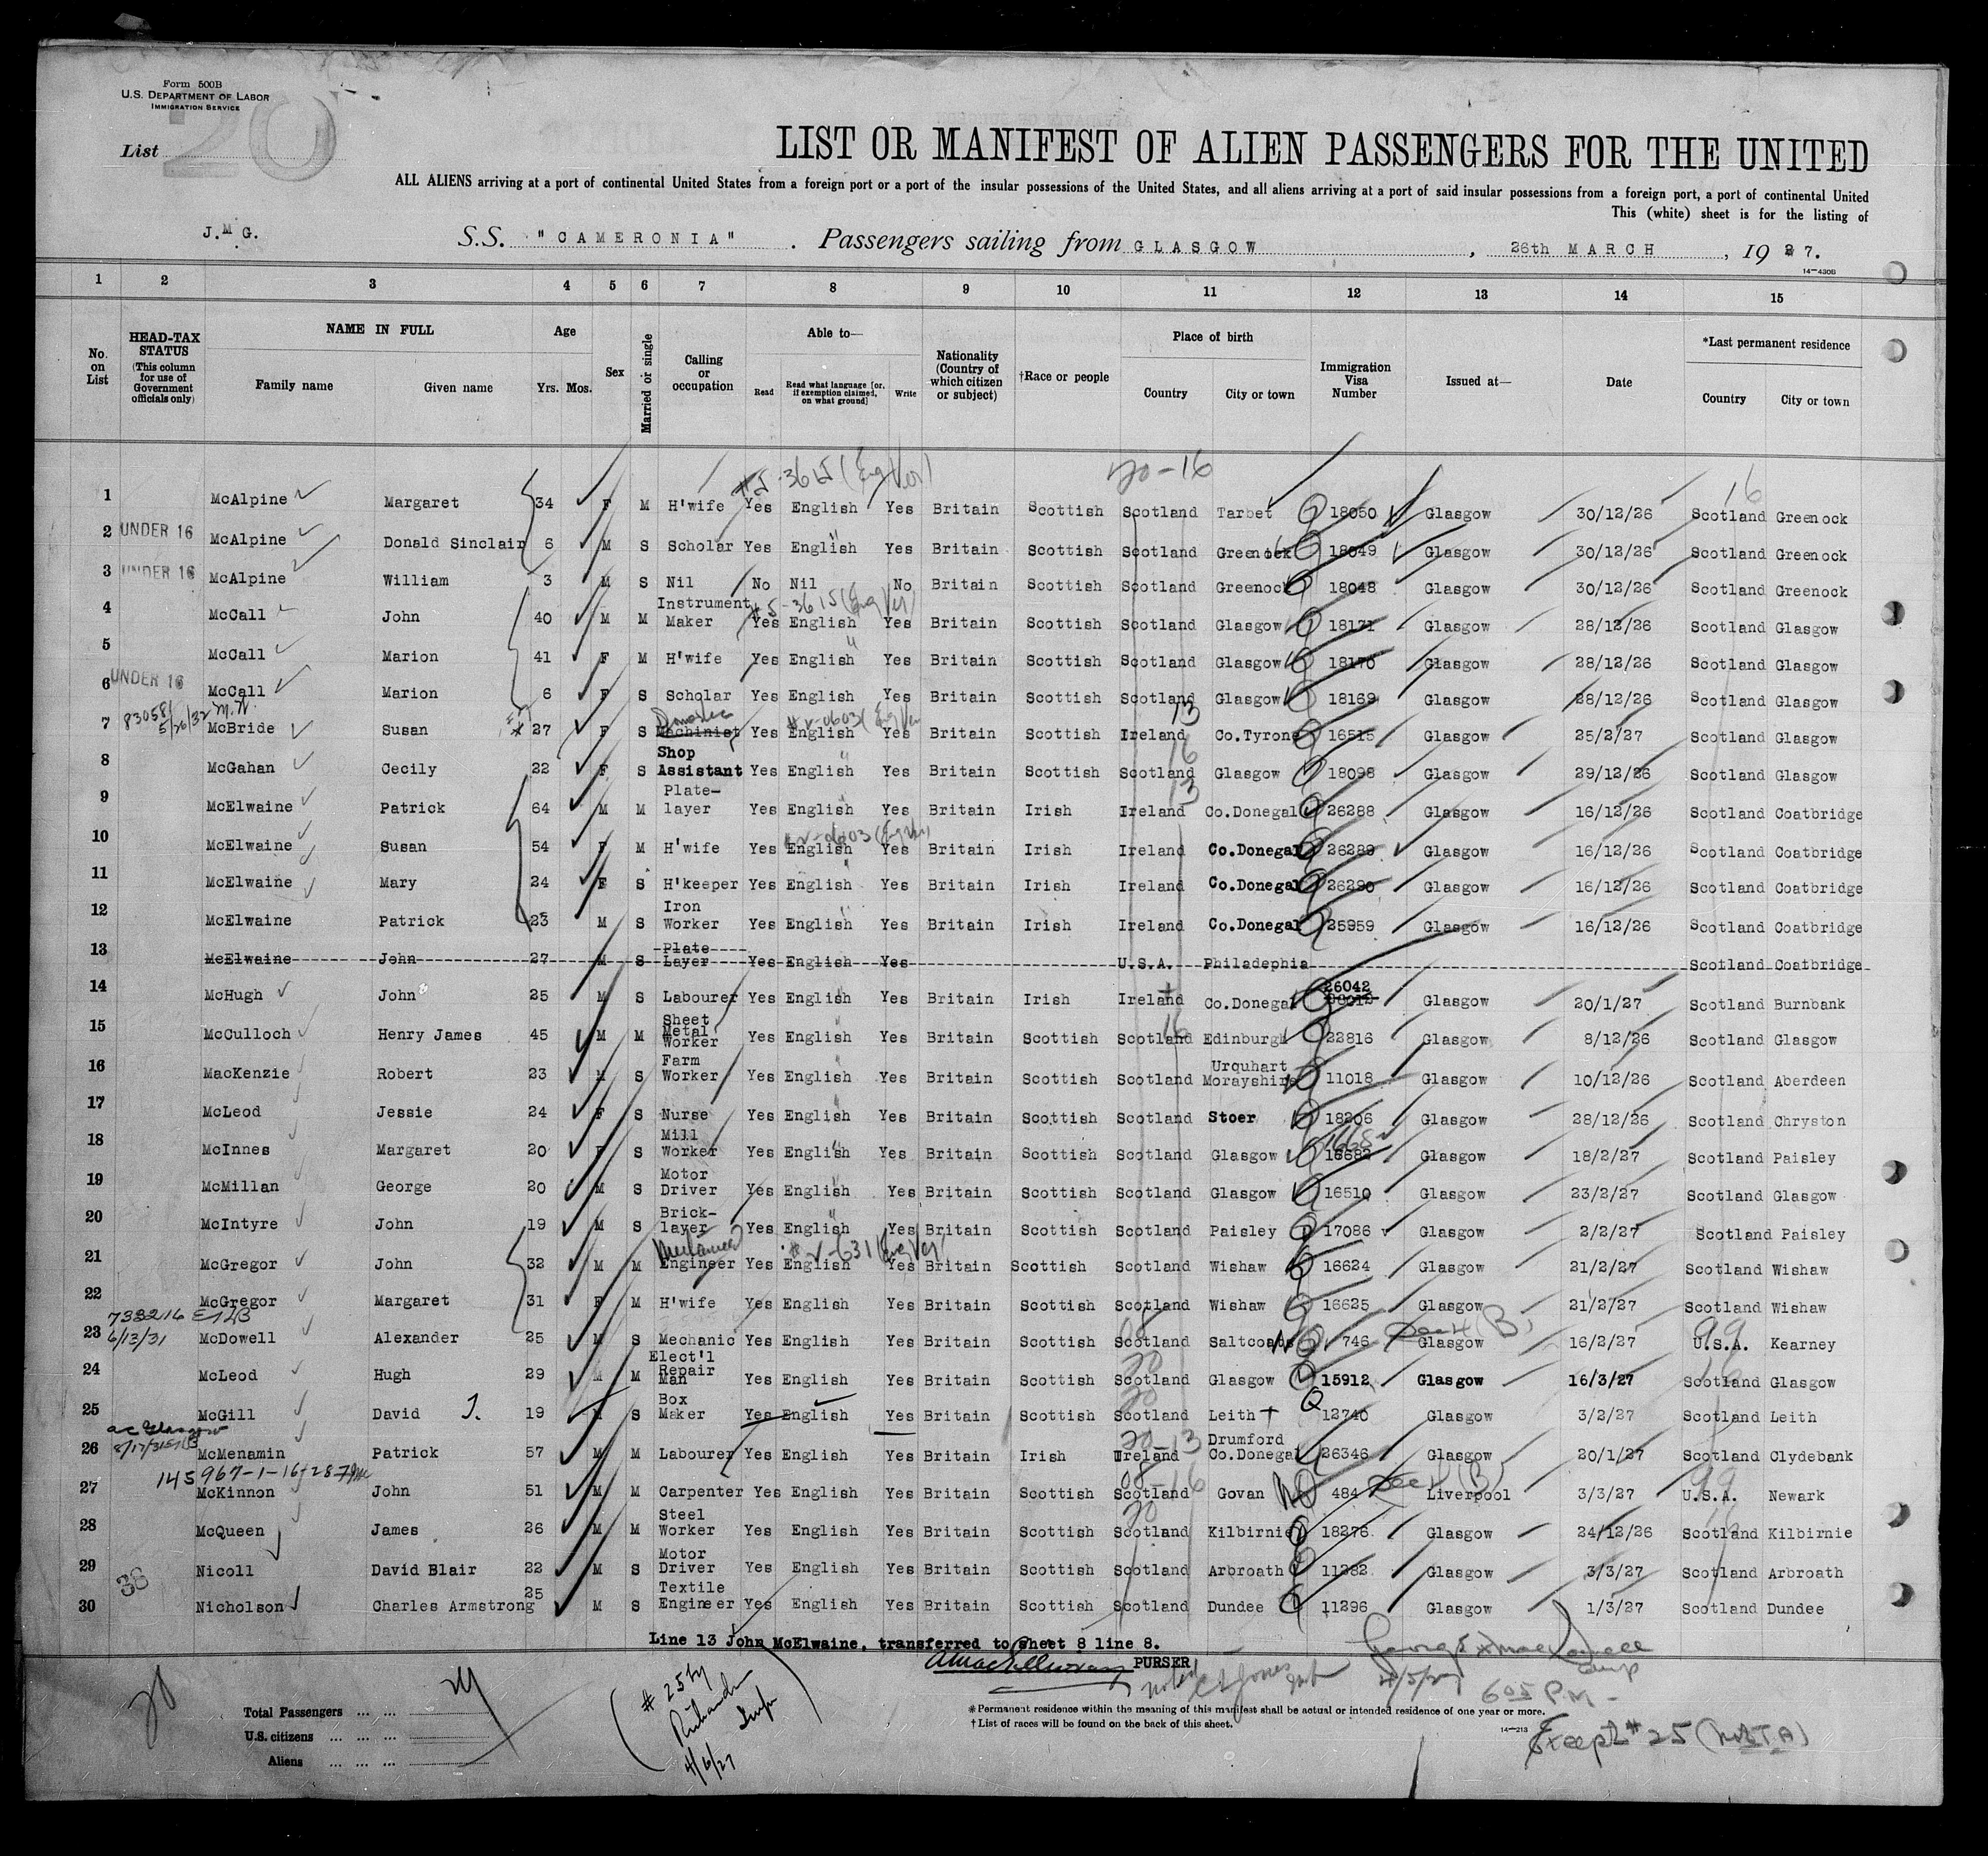 Form 500B
U.S. DEPARTMENT OF LABOR
IMMIGRATION SERVICE
20
List
LIST OR MANIFEST OF ALIEN PASSENGERS FOR THE UNITED
ALL ALIENS arriving at a port of continental United States from a foreign port or a port of the insular possessions of the United States, and all aliens arriving at a port of said insular possessions from a foreign port, a port of continental United
This (white) sheet is for the listing of
J.M G. S.S. "CAMERONIA". Passengers sailing from GLASGOW, 26th MARCH, 19 27.
14-430B
1 2 3 4 5 6 7 8 9 10 11 12 13 14 15
No. on List HEAD-TAX STATUS (This column for use of Government officials only) NAME IN FULL Family name Given name Age Yrs. Mos. Sex Married or single Calling or occupation Able to— Read Read what language [or, if exemption claimed, on what ground] Write Nationality (Country of which citizen or subject) †Race or people Place of birth Country City or town Immigration Visa Number Issued at— Date *Last permanent residence Country City or town
#5-3615 (Eng Ver) 20-16
1 McAlpine Margaret 34 F M H'wife Yes English Yes Britain Scottish Scotland Tarbet 18050 Glasgow 30/12/26 Scotland Greenock
2 UNDER 16 McAlpine Donald Sinclair 6 M S Scholar Yes English Yes Britain Scottish Scotland Greenock 18049 Glasgow 30/12/26 Scotland Greenock
3 UNDER 16 McAlpine William 3 M S Nil No Nil No Britain Scottish Scotland Greenock 18048 Glasgow 30/12/26 Scotland Greenock
4 McCall John 40 M M Instrument Maker Yes English Yes Britain Scottish Scotland Glasgow 18171 Glasgow 28/12/26 Scotland Glasgow
5 McCall Marion 41 F M H'wife Yes English Yes Britain Scottish Scotland Glasgow 18170 Glasgow 28/12/26 Scotland Glasgow
6 UNDER 16 McCall Marion 6 F S Scholar Yes English Yes Britain Scottish Scotland Glasgow 18169 Glasgow 28/12/26 Scotland Glasgow
7 5/26/32 McBride Susan 27 F S Machinist Yes English Yes Britain Scottish Ireland Co.Tyrone 16515 Glasgow 25/2/27 Scotland Glasgow
8 McGahan Cecily 22 F S Shop Assistant Yes English Yes Britain Scottish Scotland Glasgow 18098 Glasgow 29/12/26 Scotland Glasgow
9 McElwaine Patrick 64 M M Plate-layer Yes English Yes Britain Irish Ireland Co.Donegal 26288 Glasgow 16/12/26 Scotland Coatbridge
10 McElwaine Susan 54 F M H'wife Yes English Yes Britain Irish Ireland Co.Donegal 26289 Glasgow 16/12/26 Scotland Coatbridge
11 McElwaine Mary 24 F S H'keeper Yes English Yes Britain Irish Ireland Co.Donegal 26290 Glasgow 16/12/26 Scotland Coatbridge
12 McElwaine Patrick 23 M S Iron Worker Yes English Yes Britain Irish Ireland Co.Donegal 25959 Glasgow 16/12/26 Scotland Coatbridge
13 McElwaine John 27 M S Plate Layer Yes English Yes U.S.A. Philadephia Scotland Coatbridge
14 McHugh John 25 M S Labourer Yes English Yes Britain Irish Ireland Co.Donegal 26042 Glasgow 20/1/27 Scotland Burnbank
15 McCulloch Henry James 45 M M Sheet Metal Worker Yes English Yes Britain Scottish Scotland Edinburgh 22816 Glasgow 8/12/26 Scotland Glasgow
16 MacKenzie Robert 23 M S Farm Worker Yes English Yes Britain Scottish Scotland Urquhart Morayshire 11018 Glasgow 10/12/26 Scotland Aberdeen
17 McLeod Jessie 24 F S Nurse Yes English Yes Britain Scottish Scotland Stoer 18206 Glasgow 28/12/26 Scotland Chryston
18 McInnes Margaret 20 F S Mill Worker Yes English Yes Britain Scottish Scotland Glasgow 16682 Glasgow 18/2/27 Scotland Paisley
19 McMillan George 20 M S Motor Driver Yes English Yes Britain Scottish Scotland Glasgow 16510 Glasgow 23/2/27 Scotland Glasgow
20 McIntyre John 19 M S Brick-layer Yes English Yes Britain Scottish Scotland Paisley 17086 Glasgow 2/2/27 Scotland Paisley
21 McGregor John 32 M M Engineer Yes English Yes Britain Scottish Scotland Wishaw 16624 Glasgow 21/2/27 Scotland Wishaw
22 McGregor Margaret 31 F M H'wife Yes English Yes Britain Scottish Scotland Wishaw 16625 Glasgow 21/2/27 Scotland Wishaw
23 6/13/31 McDowell Alexander 25 M S Mechanic Yes English Yes Britain Scottish Scotland Saltcoats 746 Glasgow 16/2/27 U.S.A. Kearney
24 McLeod Hugh 29 M M Elect'l Repair Man Yes English Yes Britain Scottish Scotland Glasgow 15912 Glasgow 16/3/27 Scotland Glasgow
25 McGill David J. 19 M S Box Maker Yes English Yes Britain Scottish Scotland Leith 12740 Glasgow 3/2/27 Scotland Leith
26 McMenamin Patrick 57 M M Labourer Yes English Yes Britain Irish Ireland Drumford Co.Donegal 26346 Glasgow 20/1/27 Scotland Clydebank
27 McKinnon John 51 M M Carpenter Yes English Yes Britain Scottish Scotland Govan 484 Liverpool 3/3/27 U.S.A. Newark
28 McQueen James 26 M M Steel Worker Yes English Yes Britain Scottish Scotland Kilbirnie 18276 Glasgow 24/12/26 Scotland Kilbirnie
29 Nicoll David Blair 22 M S Motor Driver Yes English Yes Britain Scottish Scotland Arbroath 11282 Glasgow 3/3/27 Scotland Arbroath
30 38 Nicholson Charles Armstrong 25 M S Textile Engineer Yes English Yes Britain Scottish Scotland Dundee 11296 Glasgow 1/3/27 Scotland Dundee
Line 13 John McElwaine, transferred to sheet 8 line 8.
PURSER
4/5/27
605 P.M.
Except #25 (
#25 by
4/6/27
Total Passengers ... ...
U.S. citizens ... ... ...
Aliens ... ... ...
*Permanent residence within the meaning of this manifest shall be actual or intended residence of one year or more.
†List of races will be found on the back of this sheet.
14-213